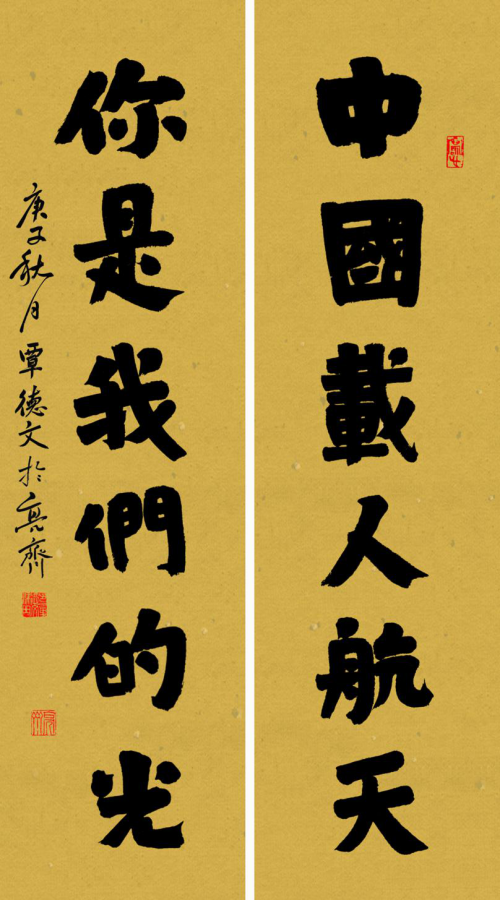 中國載人航天
你是我們的光
庚子秋月覃德文於亮齊